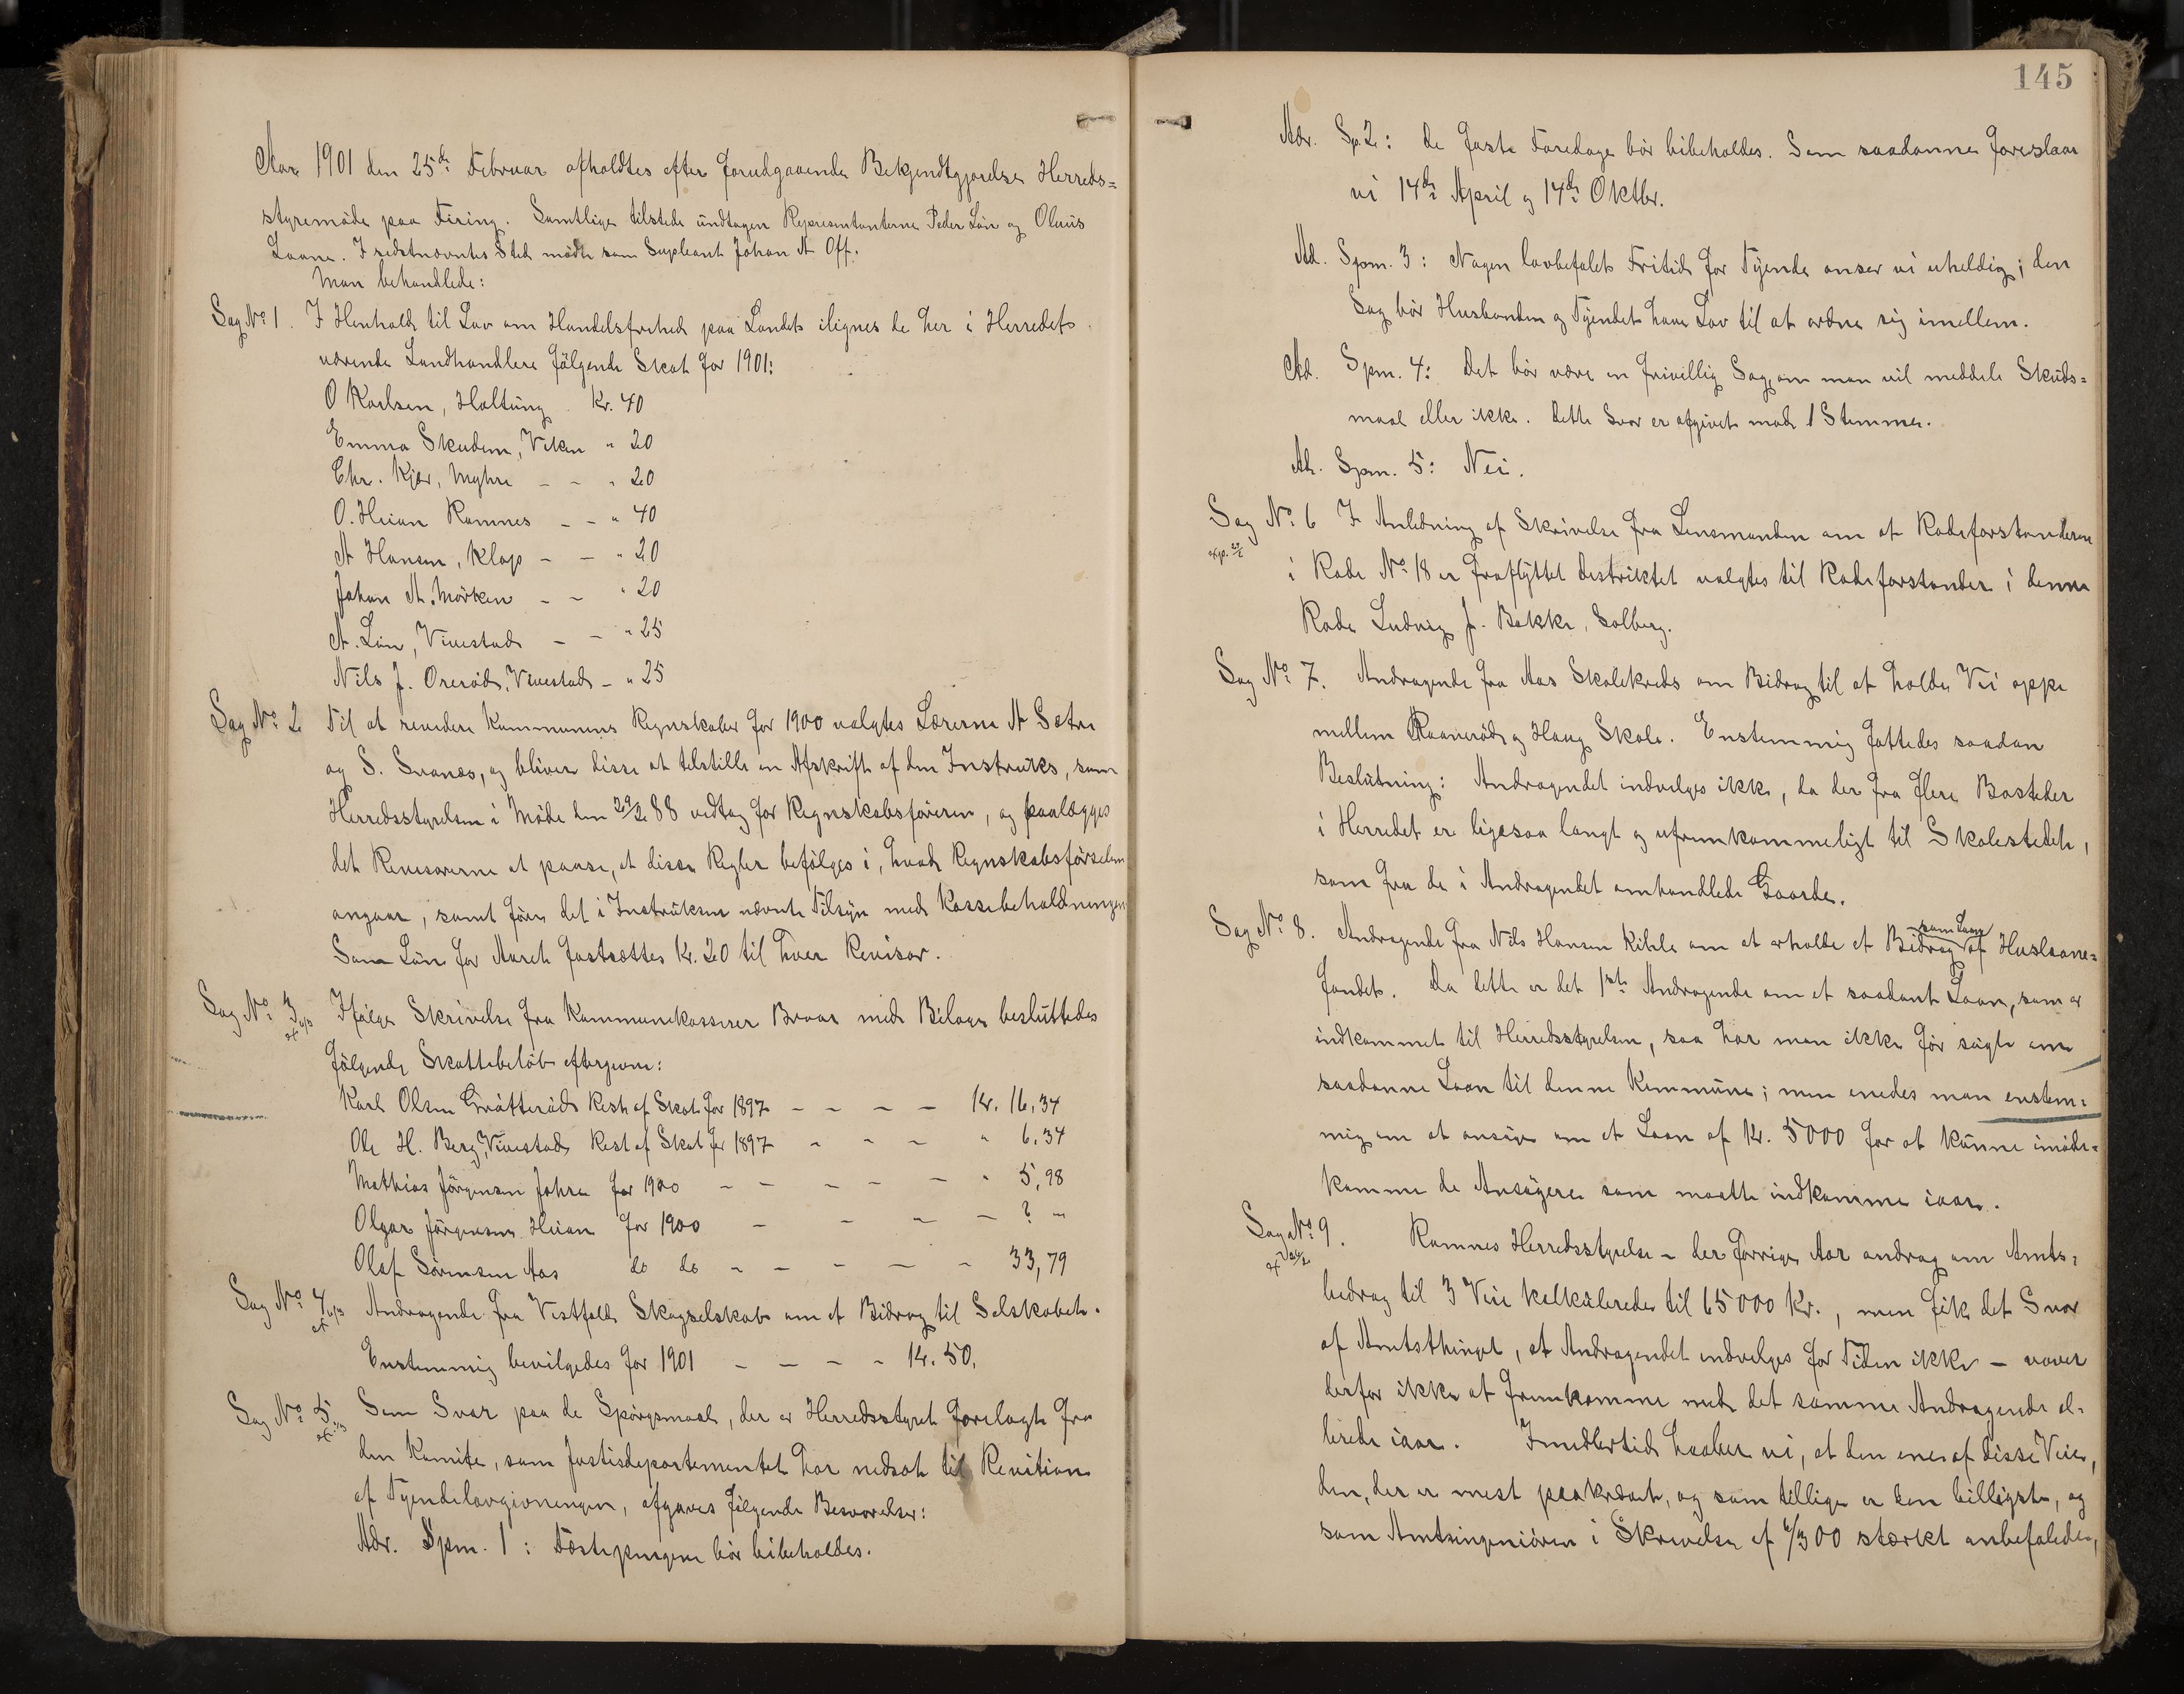 Aar 1901 den 25de Februar afholdtes efter forudgaaende Bekjendtgjørelse Herreds=
styremøde paa Firing. Samtlige tilstede undtagen Repræsentanterne Peder Løn og Olaüs
Laane. I sidstnævntes Sted mødte som Supleant Johan A Off.
Man behandlede:
Sag No 1. I Henhold til Lov om Handelsfrihed paa Landet ilignes de her i Herredet
værende Landhandlere følgende Skat for 1901:
O Karlsen, Holtung Kr. 40
Emma Skuden, Viken " 20
Chr. Kjær, Myhre - - " 20
O. Heian Ramnes - - " 40
A Hansen, Klop - - " 20
Johan A. Mørken - - " 20
A. Løn, Vivestad - - " 25
Nils J. Orerød, Vivestad - " 25
Sag No 2 Til at revidere Kommunens Regnskaber for 1900 valgtes Lærerne A Sætre
og S. Svanæs, og bliver disse at tilstille en Afskrift af den Instruks, som
Herredsstyrelsen i Møde den 29/2 88 vedtog for Regnskabsføreren, og paalægges
det Revisorerne at paase, at disse Regler befølges i, hvad Regnskabsførselen
angaar, samt føre det i Instruksen nævnte Tilsyn med Kassebeholdningen
Som Løn for Aaret fastsættes Kr. 20 til hver Revisor.
Sag No 3 Ifølge Skrivelse fra Kommunekasserer Bruar med Bilage besluttedes
følgende Skattebeløb eftergivne:
Karl Olsen Gråtterød Rest af Skat for 1897 - - - - Kr. 16,34
Ole H. Berg, Vivestad Rest af Skat for 1897 - - - " 6,34
Mathias Jørgensen Johre for 1900 - - - - - " 5,98
Olgar Jørgensen Heian for 1900 - - - - ? "
Olaf Sørensen Aas do do - - - - - 33,79
Sag No 4 Andragende fra Vestfold Skogselskab om et Bidrag til Selskabet.
Enstemmig bevilgedes for 1901 - - - - Kr. 50.
Sag No 5 Som Svar paa de Spørgsmaal, der er Herredsstyret forelagt fra
den Komite, som Justisdepartementet har nedsat til Revition
af Tyendelovgivningen, afgaves følgende Besvarelser:
Adr. Spm. 1: Fæstepengene bør bibeholdes.
145
Adr. Sp. 2: De faste Faredage bør bibeholdes. Som saadanne foreslaar
vi 14de April og 14de Oktbr.
Ad. Spm. 3: Nogen lovbefalet Fritid for Tyende anser vi uheldig; den
Sag bør Husbonden og Tyendet have Lov til at ordne sig imellem.
Ad. Spm. 4: Det bør være en frivillig Sag, om man vil meddele Skuds=
maal eller ikke. Dette Svar er afgivet mod 1 Stemme.
Ad. Spm. 5: Nei.
Sag No 6 I Anledning af Skrivelse fra Lensmanden om at Rodeforstanderen
i Rode No 18 er fraflyttet Distriktet valgtes til Rodeforstander i denne
Rode Ludvig J. Bakke, Solberg.
Sag No 7. Andragende fra Aas Skolekreds om Bidrag til at holde Vei oppe
mellem Raanerød og Haug Skole. Enstemmig fattedes saadan
Beslutning: Andragendet indvilges ikke, da der fra flere Bosteder
i Herredet er ligesaa langt og ufremkommeligt til Skolestedet,
som fra de i Andragendet omhandlede Gaarde.
Sag No 8. Andragende fra Nils Hansen Kihle om at erholde et Bidrag som Laan af Huslaane=
fondet. Da dette er det 1ste Andragende om et saadant Laan, som er
indkommet til Herredsstyrelsen, saa har man ikke før søgt om
saadanne Laan til denne Kommune; men enedes man enstem=
mig om at ansøge om et Laan af Kr. 5000 for at kunne imøde=
komme de Ansøgere som maatte indkomme iaar.
Sag No 9. Ramnes Herredsstyrelse - der forrige Aar androg om Amts=
bidrag til 3 Veie kalkulerede til 65000 Kr., men fik det Svar
af Amtsthinget, at Andragendet indvilges for Tiden ikke - vover
derfor ikke at fremkomme med det samme Andragende al=
lerede iaar. Imidlertid haaber vi, at den ene af disse Veie,
den, der er mest paakrævet, og som tillige er den billigste, og
som Amtsingeniøren i Skrivelse af 6/3 00 stærkt anbefalede,